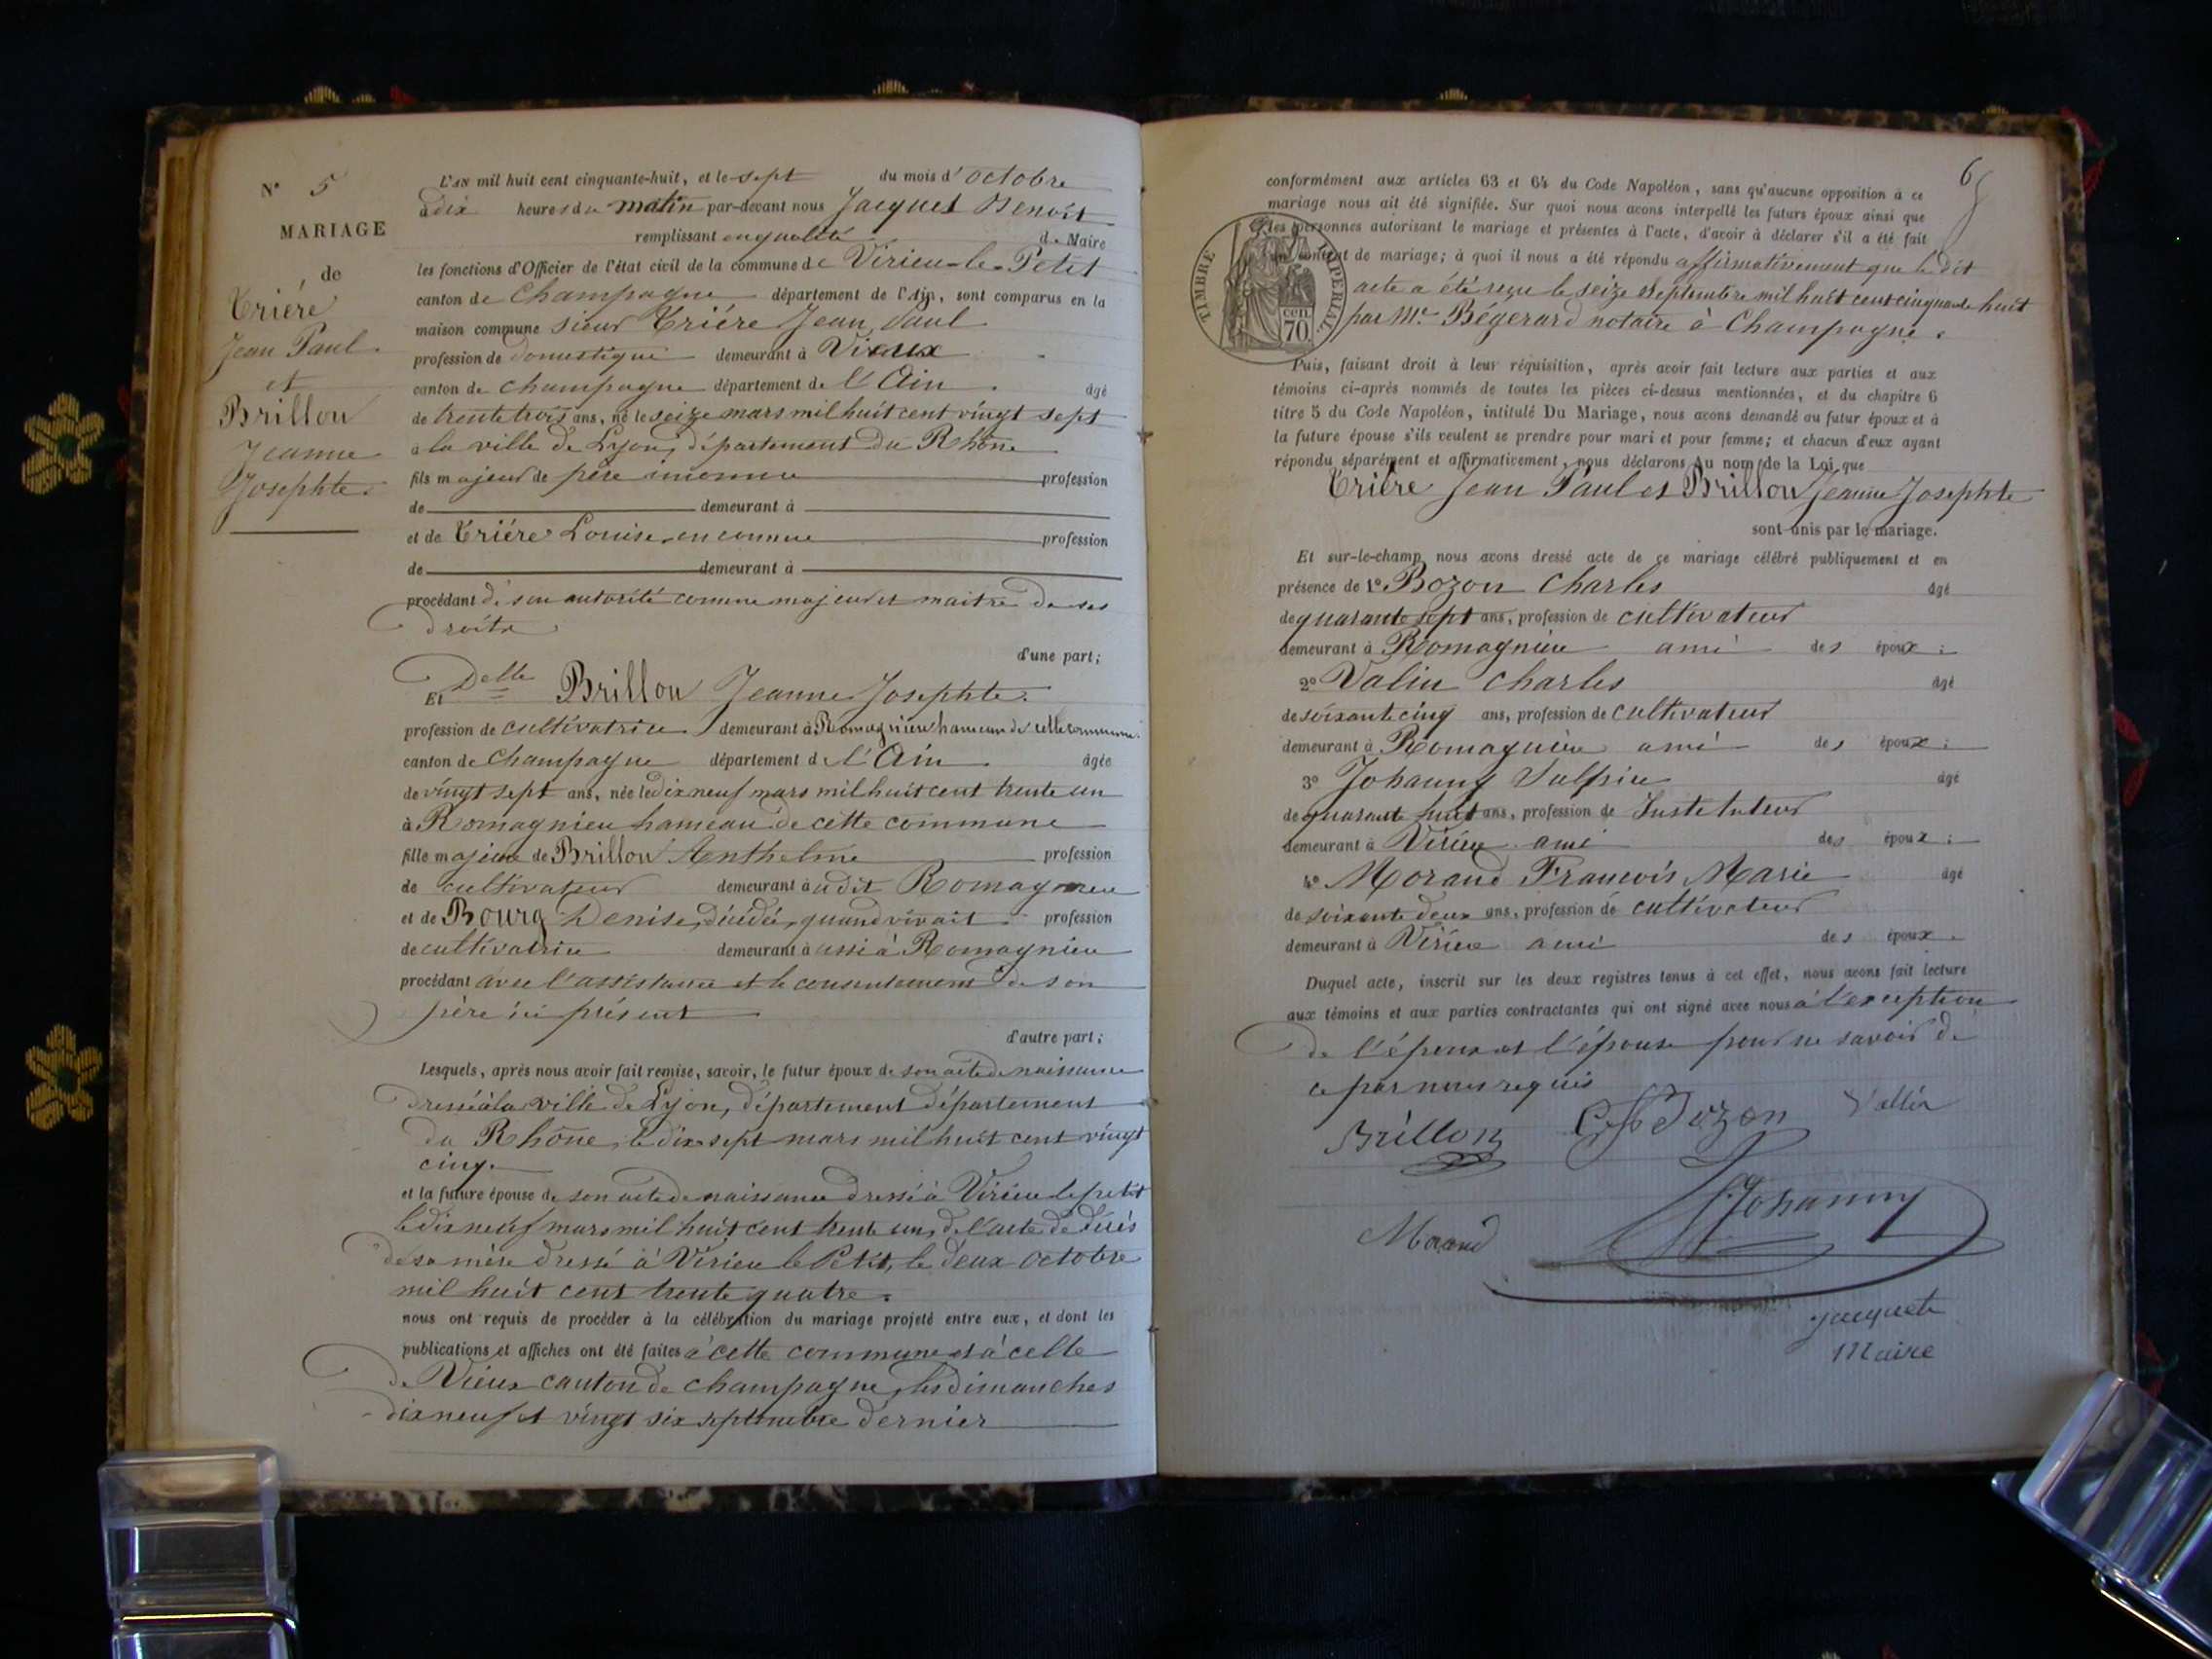 N° 5
MARIAGE
de
Triére
Jean Paul
et
Brillon
Jeanne
Josephte
L'AN mil huit cent cinquante-huit, et le sept du mois d'octobre
à dix heures du matin par-devant nous Jacquet Benoît
remplissant en qualité de Maire
les fonctions d'Officier de l'état civil de la commune de Virieu-le-Petit
canton de Champagne département de l'Ain, sont comparus en la
maison commune sieur Triére Jean Paul
profession de domestique demeurant à Vieux
canton de champagne département de l'Ain. âgé
de trente trois ans, né le seize mars mil huit cent vingt sept
à la ville de Lyon, département du Rhône
fils majeur de père inconnu profession
de demeurant à
et de Triére Louise, inconnue profession
de demeurant à
procédant de son autorité comme majeur et maitre de ses
droits
d'une part;
Et Delle Brillon Jeanne Josephte.
profession de cultivatrice demeurant à Romagnieu hameau de cette commune.
canton de Champagne département de l'Ain. âgée
de vingt sept ans, née le dix neuf mars mil huit cent trente un
à Romagnieu hameau de cette commune
fille majeure de Brillon Anthelme profession
de cultivateur demeurant à udit Romagnieu
et de Bourg Denise, décédée, quand vivait profession
de cultivatrice demeurant à ussi à Romagnieu
procédant avec l'assistance et le consentement de son
père ici présent
d'autre part;
Lesquels, après nous avoir fait remise, savoir, le futur époux de son acte de naissance
dressé à la ville de Lyon, département département
du Rhône, le dix sept mars mil huit cent vingt
cinq.
et la future épouse de son acte de naissance dressé à Virieu le petit
le dix neuf mars mil huit cent trente un, de l'acte de décès
de sa mère dressé à Virieu le Petit, le deux octobre
mil huit cent trente quatre.
nous ont requis de procéder à la célébration du mariage projeté entre eux, et dont les
publications et affiches ont été faites à cette commune et à celle
de Vieux canton de champagne, les dimanches
dix neuf et vingt six septembre dernier
6
conformément aux articles 63 et 64 du Code Napoléon, sans qu'aucune opposition à ce
mariage nous ait été signifiée. Sur quoi nous avons interpellé les futurs époux ainsi que
les personnes autorisant le mariage et présentes à l'acte, d'avoir à déclarer s'il a été fait
un contrat de mariage; à quoi il nous a été répondu affirmativement que le dit
acte a été reçu le seize septembre mil huit cent cinquante huit
par Me Bégerard notaire à Champagne.
TIMBRE IMPERIAL.
cen. 70.
Puis, faisant droit à leur réquisition, après avoir fait lecture aux parties et aux
témoins ci-après nommés de toutes les pièces ci-dessus mentionnées, et du chapitre 6
titre 5 du Code Napoléon, intitulé Du Mariage, nous avons demandé au futur époux et à
la future épouse s'ils veulent se prendre pour mari et pour femme; et chacun d'eux ayant
répondu séparément et affirmativement, nous déclarons Au nom de la Loi que
Triére Jean Paul et Brillon Jeanne Josephte
sont unis par le mariage.
Et sur-le-champ nous avons dressé acte de ce mariage célébré publiquement et en
présence de 1° Bozon Charles âgé
de quarante sept ans, profession de cultivateur
demeurant à Romagnieu ami des époux;
2° Valin Charles âgé
de soixante cinq ans, profession de cultivateur
demeurant à Romagnieu ami des époux;
3° Johanny Sulpice âgé
de quarante huit ans, profession de Instituteur
demeurant à Virieu ami des époux;
4° Morand François Marie âgé
de soixante deux ans, profession de cultivateur
demeurant à Virieu ami des époux.
Duquel acte, inscrit sur les deux registres tenus à cet effet, nous avons fait lecture
aux témoins et aux parties contractantes qui ont signé avec nous à l'exception
de l'époux et l'épouse pour ne savoir de
ce par nous requis
Brillon Bozon Vallin
Morand Johanny
Jacquet
Maire